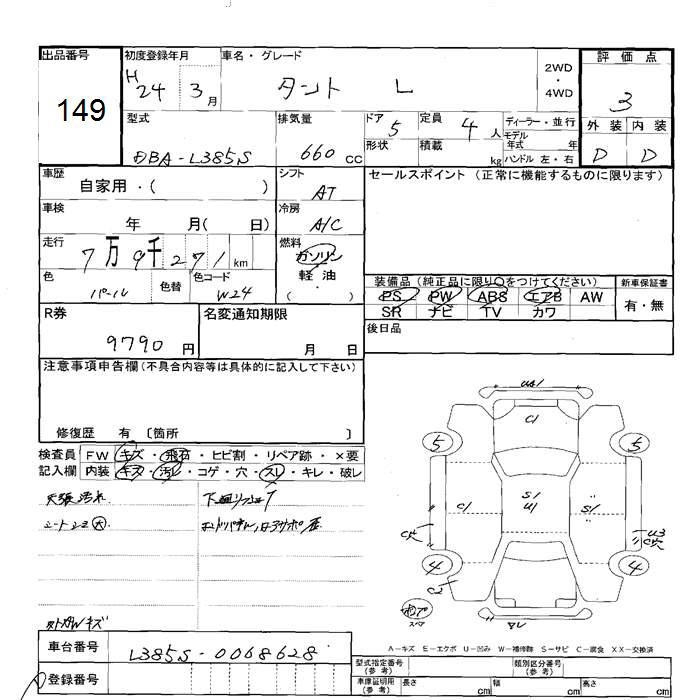 出品番号 149
初度登録年月 H24 3月
車名・グレード タント L
2WD・4WD
評価点 3
外装 D 内装 D
型式 DBA-L385S
排気量 660 cc
ドア 5
形状
定員 4人
積載 kg
ディーラー・並行
モデル年式 年
ハンドル 左・右
車歴 自家用・( )
シフト AT
セールスポイント (正常に機能するものに限ります)
車検 年 月( 日)
冷房 A/C
走行 7万9千271km
燃料 ガソリン 軽油 ( )
色 パール 色替
色コード W24
装備品(純正品に限り○をつけてください)
PS PW ABS エアB AW
SR ナビ TV カワ
新車保証書 有・無
R券 9790円
名変通知期限 月 日
後日品
注意事項申告欄(不具合内容等は具体的に記入して下さい)
修復歴 有 〔箇所 〕
検査員記入欄
FW キズ・飛石・ヒビ割・リペア跡・×要
内装 キズ・汚れ・コゲ・穴・スレ・キレ・破レ
天張汚れ
シートシミ大
U1
C1
5 5
C1
S1
U1
S1
U3
4 4
C2
A-キズ E-エクボ U-凹み W-補修跡 S-サビ C-腐食 XX-交換済
車台番号 L385S-0068628
登録番号
型式指定番号(参考)
類別区分番号(参考)
車庫証明用(参考) 長さ cm 幅 cm 高さ cm